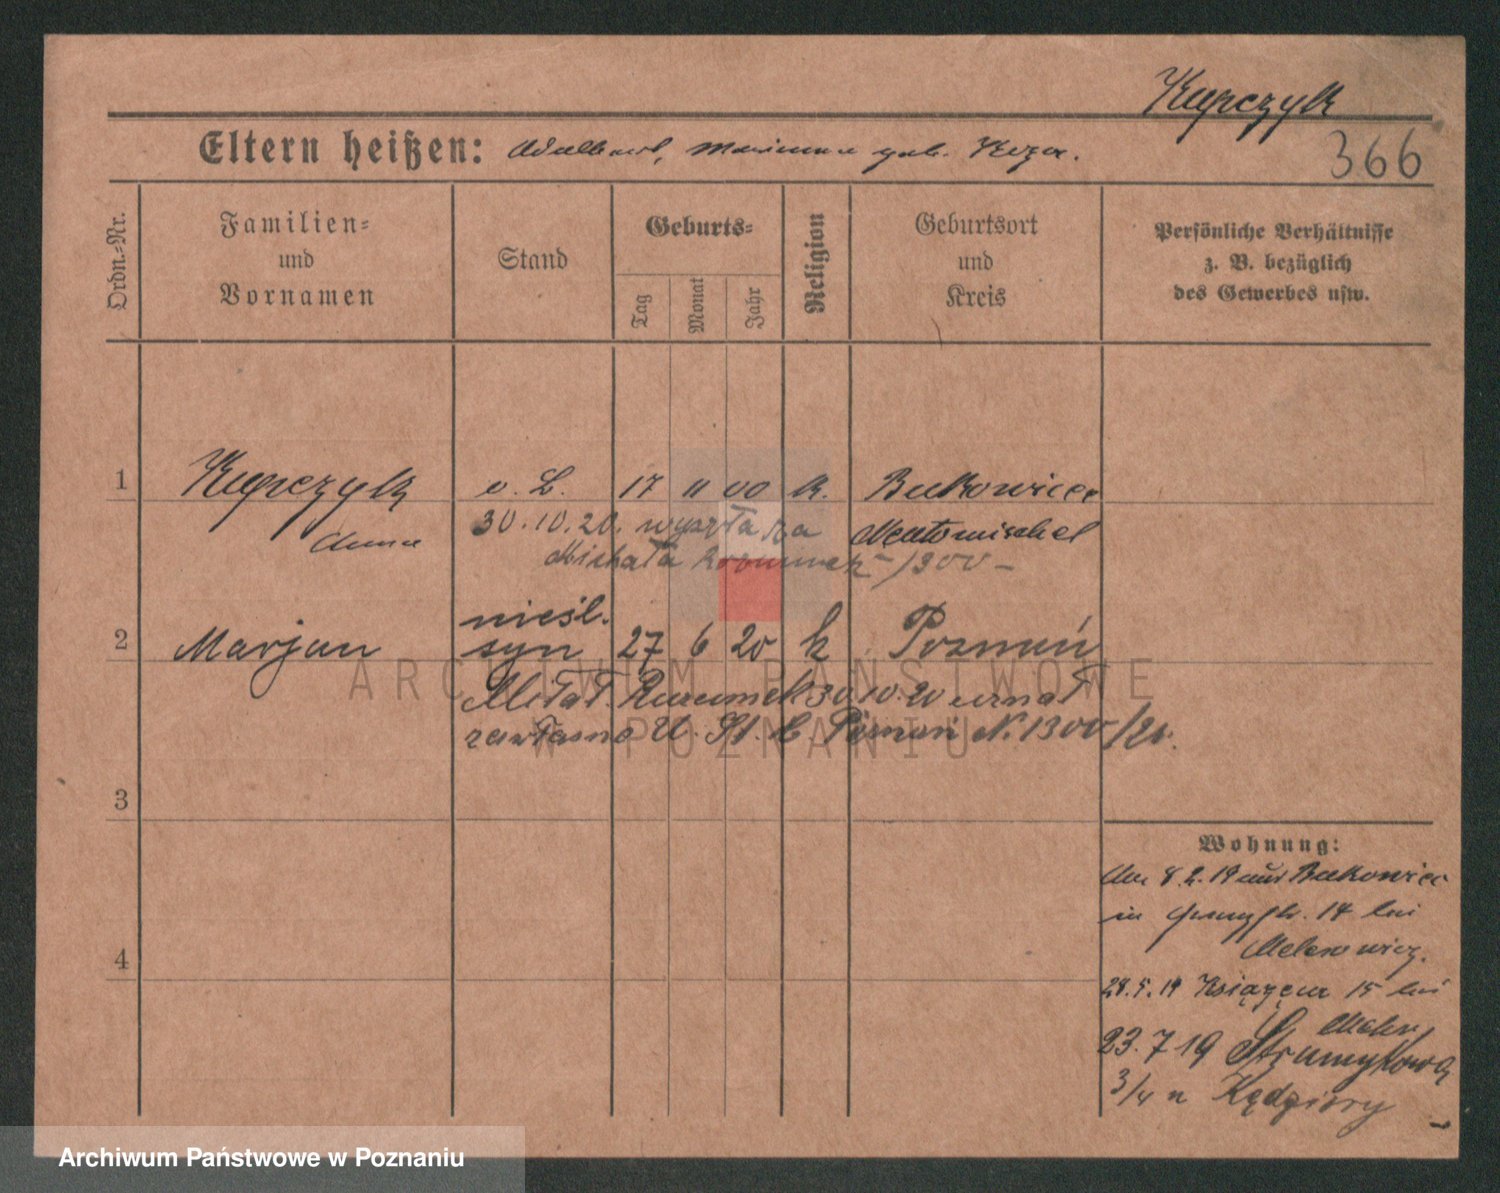 Kupczyk
Eltern heißen: Adalbert, Marianna geb. Koza.
366
Ordn.-Nr.
Familien- und Vornamen
Stand
Geburts-
Tag
Monat
Jahr
Religion
Geburtsort und Kreis
Persönliche Verhältnisse z. B. bezüglich des Gewerbes usw.
1 Kupczyk o. B. 17 11 00 k. Bukowiec
Anna 30.10.20. wyszła za Neutomischel
Michała 1300
nieśl.
2 Marjan syn 27 6 20 k Poznań
30.10.20 uznał
U. St. C. Poznań N. 1300/20.
3
4
Wohnung:
8.2.19 aus Bukowiec
in 14 bei
28.5.19 Książęca 15 bei
23.7 19 Strumykowa
3/4 u Kędziory
ARCHIWUM PAŃSTWOWE
W POZNANIU
Archiwum Państwowe w Poznaniu